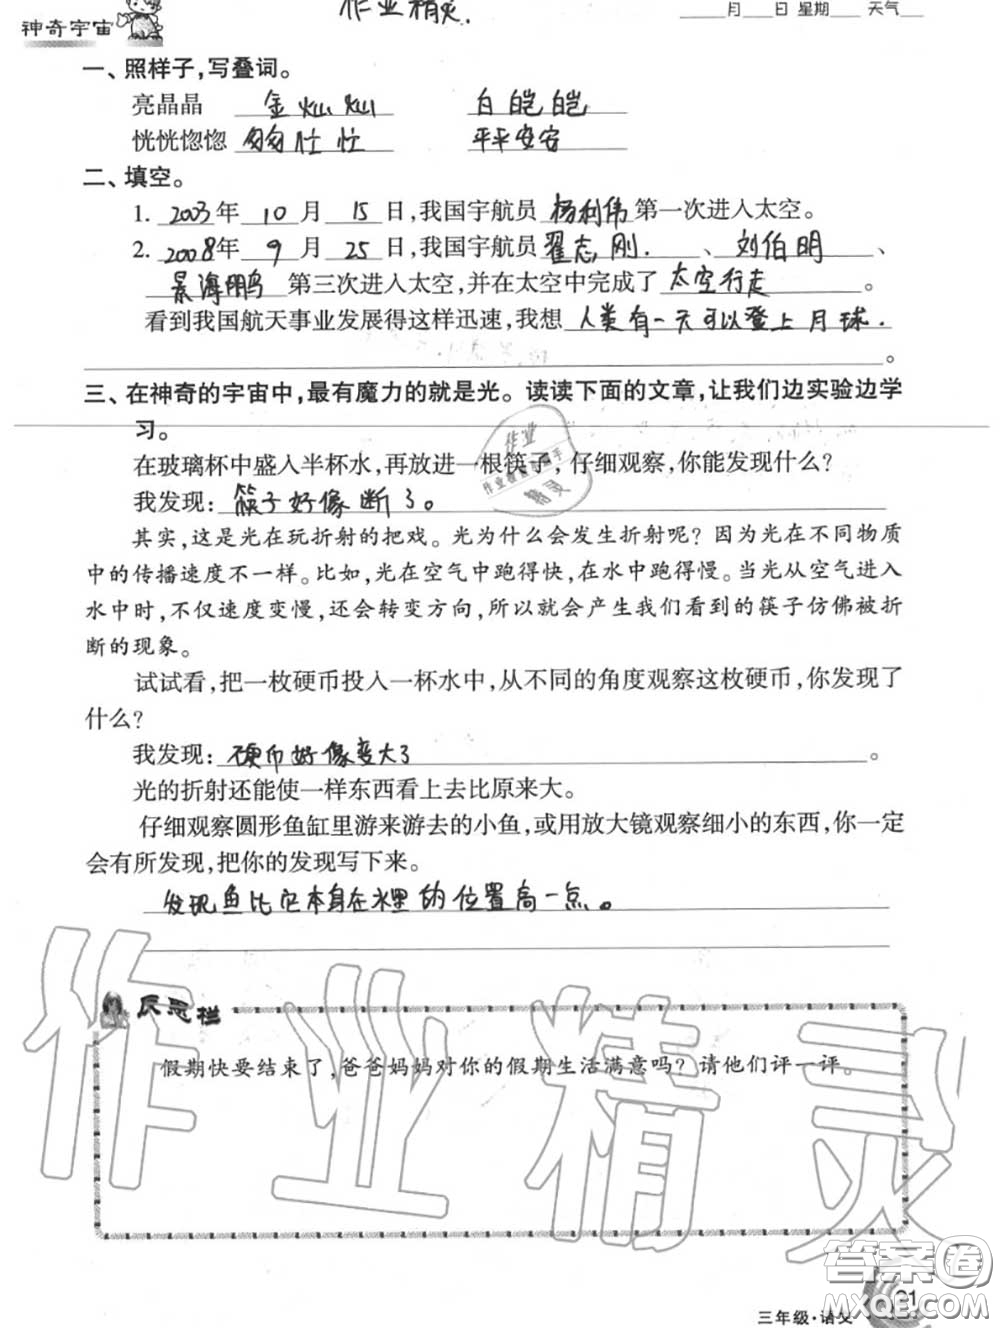 神奇宇宙
作业精灵.
月 日 星期 天气
一、照样子,写叠词。
亮晶晶 金灿灿 白皑皑
恍恍惚惚 匆匆忙忙 平平安安
二、填空。
1. 2003年 10 月 15 日,我国宇航员 杨利伟 第一次进入太空。
2. 2008年 9 月 25 日,我国宇航员 翟志刚. 、 刘伯明 、
景海鹏 第三次进入太空,并在太空中完成了 太空行走 。
看到我国航天事业发展得这样迅速,我想 人类有一天可以登上月球.
。
三、在神奇的宇宙中,最有魔力的就是光。读读下面的文章,让我们边实验边学
习。
在玻璃杯中盛入半杯水,再放进一根筷子,仔细观察,你能发现什么?
我发现: 筷子好像断了。
其实,这是光在玩折射的把戏。光为什么会发生折射呢?因为光在不同物质
中的传播速度不一样。比如,光在空气中跑得快,在水中跑得慢。当光从空气进入
水中时,不仅速度变慢,还会转变方向,所以就会产生我们看到的筷子仿佛被折
断的现象。
试试看,把一枚硬币投入一杯水中,从不同的角度观察这枚硬币,你发现了
什么?
我发现: 硬币好像变大了 。
光的折射还能使一样东西看上去比原来大。
仔细观察圆形鱼缸里游来游去的小鱼,或用放大镜观察细小的东西,你一定
会有所发现,把你的发现写下来。
发现鱼比它本身在水里的位置高一点。
反思栏
假期快要结束了,爸爸妈妈对你的假期生活满意吗?请他们评一评。
作业精灵
答案卷
MXQE.COM
三年级·语文